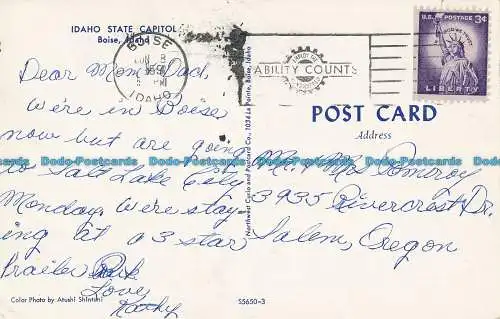 IDAHO STATE CAPITOL
Boise, Idaho
Dear Mom & Dad,
We're in Boise
now but are going
to Salt Lake City
Monday. We're stay-
ing at a 3 star
trailer Park
Love,
Kathy
Color Photo by Atushi Shintani
S5650-3
Northwest Curio and Postcard Co., 1034 La Pointe, Boise, Idaho
BOISE
JUN 8
PM
1959
IDAHO
EMPLOY THE
ABILITY COUNTS
U.S. POSTAGE 3¢
IN GOD WE TRUST
LIBERTY
POST CARD
Address
Mr. & Mrs. Pomeroy
3935 Rivercrest Dr.
Salem, Oregon
Dodo-Postcards Dodo-Postcards Dodo-Postcards Dodo-Postcards Dodo-Postcards